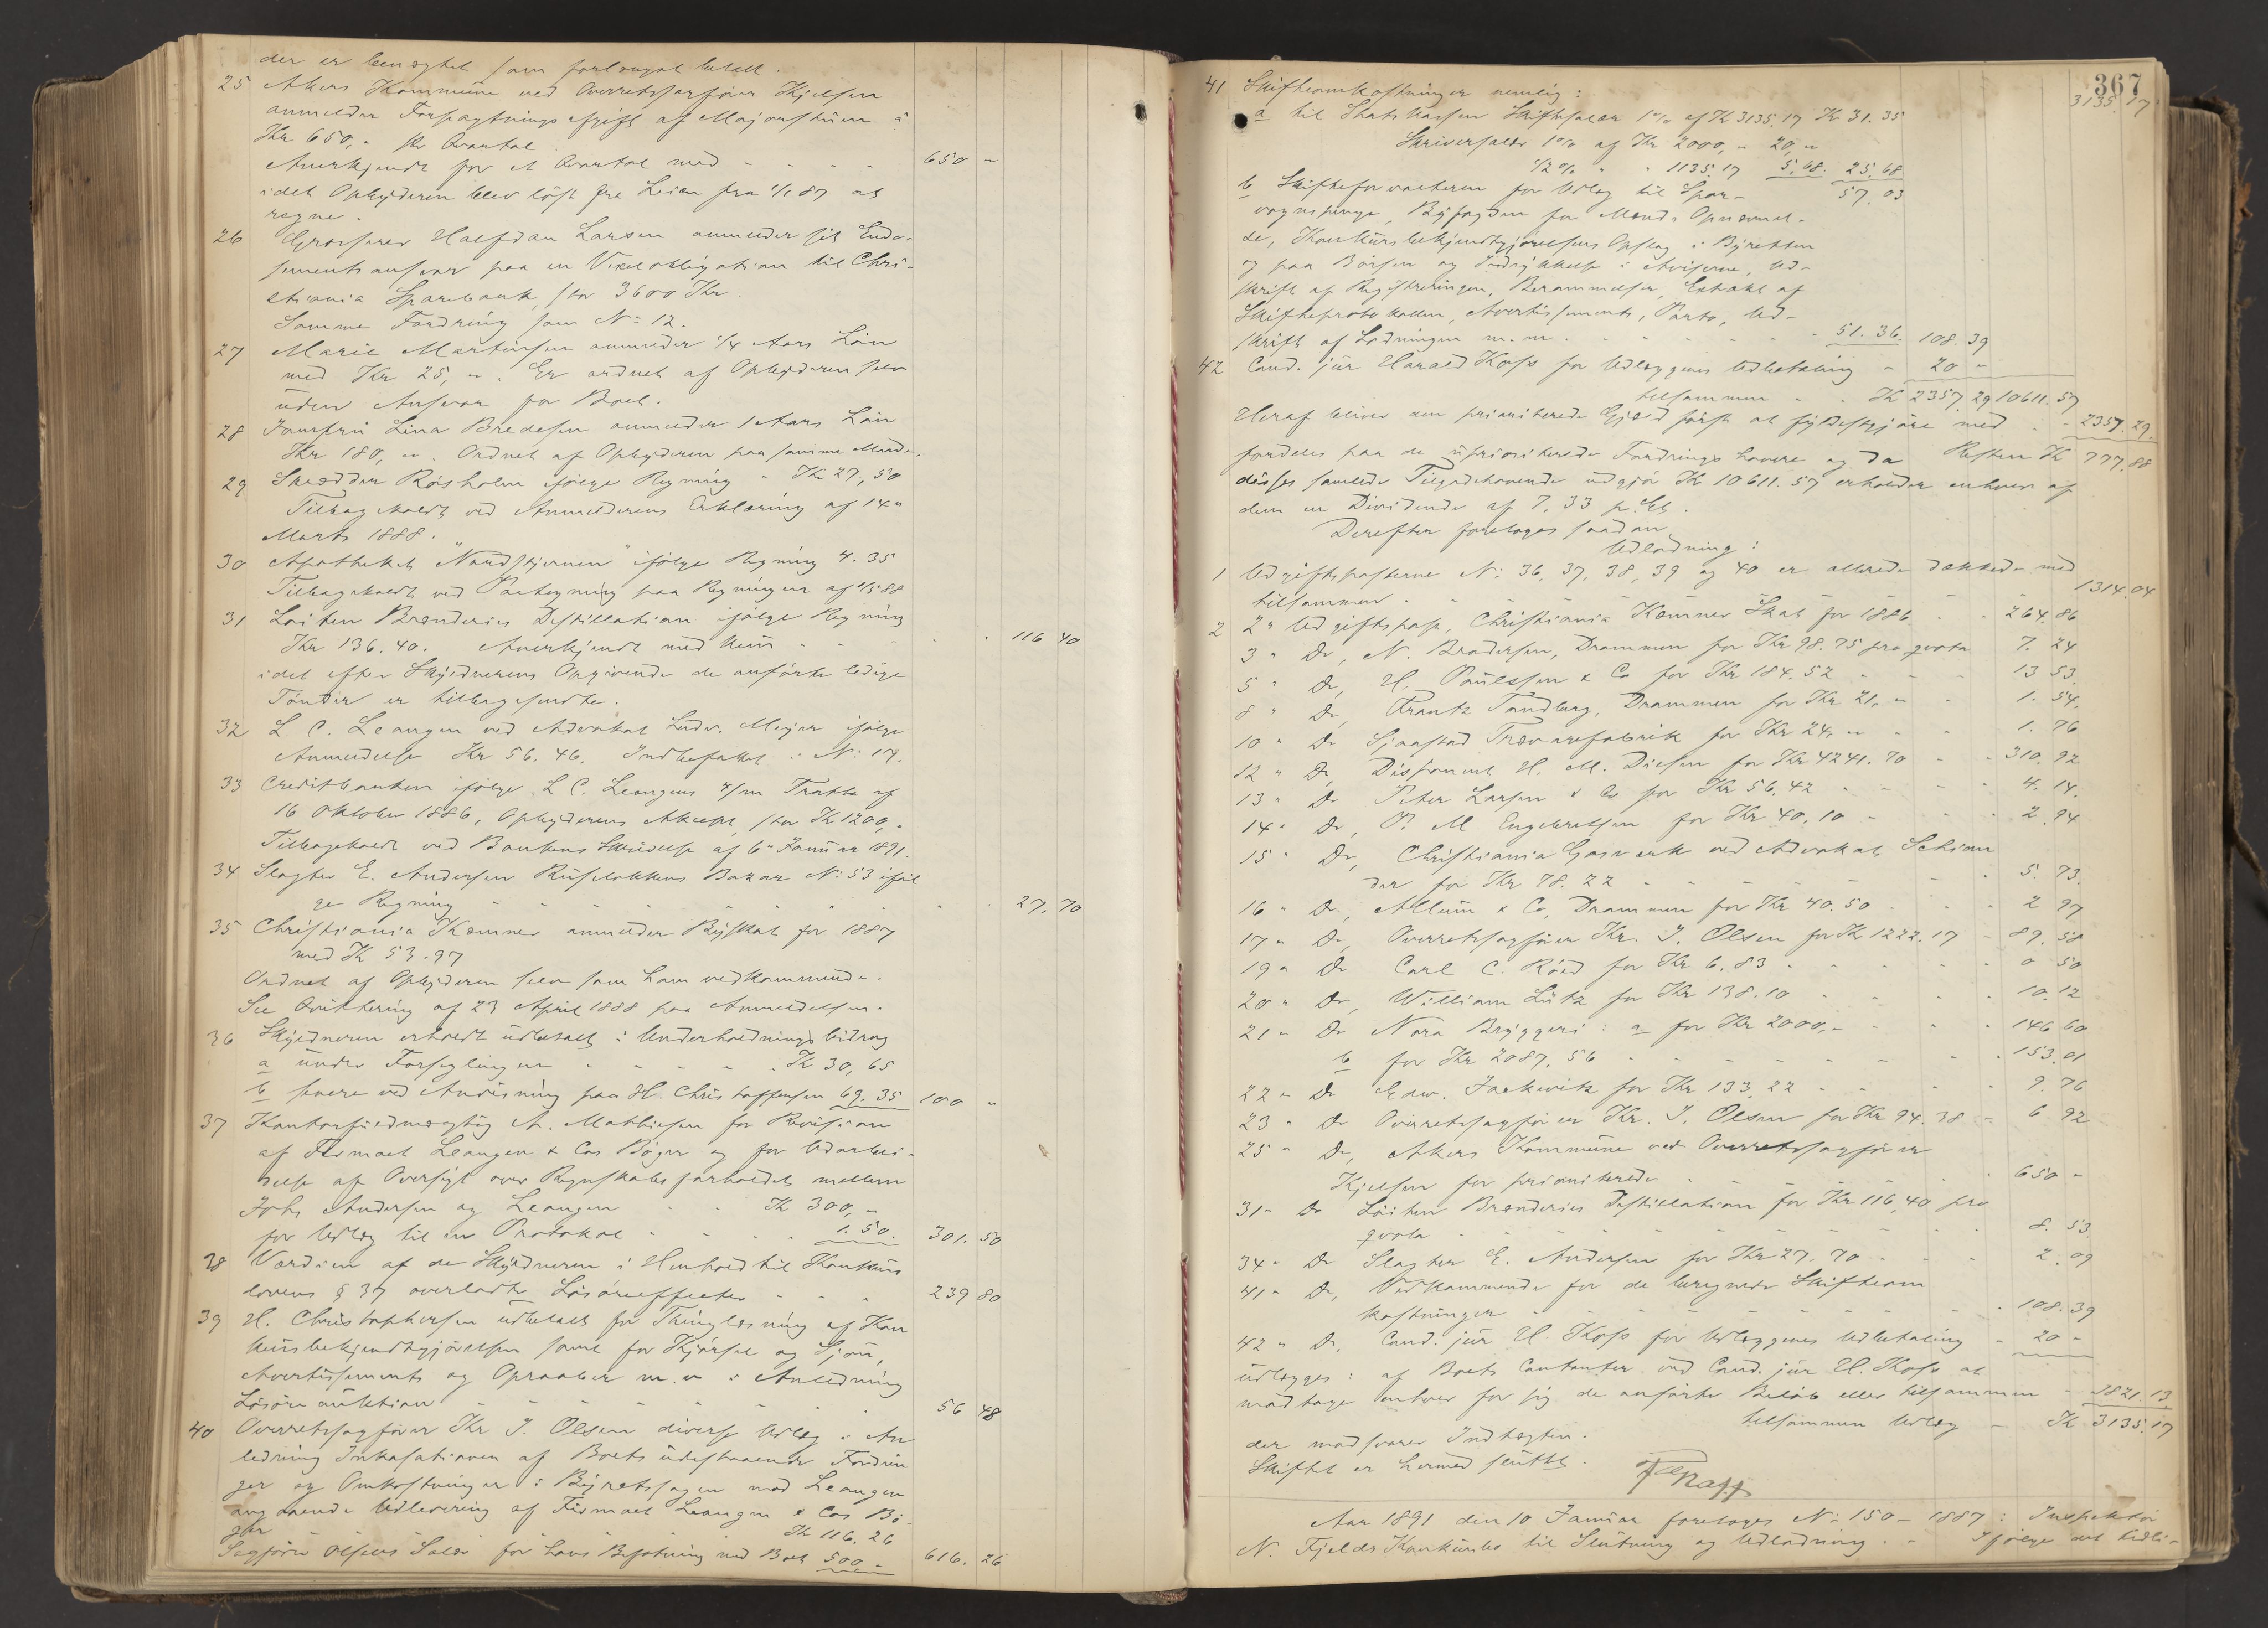 der er benægtet som forlangat betalt.
25 Akers Kommune ved Overretssagfører Kjelsen
anmelder Forpagtningsafgift af Majorstuen à
Kr 650,- pr Qvartal.
Anerkjendt for et Qvartal med - - - - 650 "
idet Opbyderen blev løst fra Leien fra 1/1 87 at
regne.
26 Grosserer Halfdan Larsen anmelder sit Endo-
sementsansvar paa en Vexelobligation til Chri-
stiania Sparebank, stor 3600 Kr.
Samme Fordring som No 12.
27 Marie Martinsen anmelder 1/4 Aars Løn
med Kr 25, ". Er ordnet af Opbyderen selv
uden Ansvar for Boet.
28 Jomfru Lina Bredesen anmelder 1 Aars Løn
Kr 180, ". Ordnet af Opbyderen paa samme Maade.
29 Skrædder Røisholm ifølge Regning - Kr 27,50
Tilbagekaldt ved Anmelderens Erklæring af 14"
Marts 1888.
30 Apotheket "Nordstjernen" ifølge Regning 4.35
Tilbagekaldt ved Paategning paa Regningen af 1/5 88
31 Løiten Brænderies Destillation ifølge Regning
Kr 136.40. Anerkjendt med kun - - - - 116 40
idet efter Skyldnerens Opgivende de anførte ledige
Tønder er tilbagesendte.
32 L C. Leangen ved Advokat Ludv. Meyer ifølge
Anmeldelse Kr 56.46. Indbefattet i No 17.
33 Creditbanken ifølge L C. Leangens 4/m Tratte af
16 Oktober 1886, Opbyderens Akcept, stor Kr 1200,-
Tilbagekaldt ved Bankens Skrivelse af 6" Januar 1891.
34 Slagter E. Andersen Ruseløkkens Bazar No 53 iføl
ge Regning - - - - 27.70
35 Christiania Kæmner anmelder Byskat for 1887
med Kr 53.97
Ordnet af Opbyderen selv som ham vedkommende.
See Qvittering af 23 April 1888 paa Anmeldelsen.
36 Skyldneren erholdt udbetalt i Underholdningsbidrag
a under Forseglingen - - - - Kr 30,65
b senere ved Anvisning paa H. Christoffersen 69.35 100 "
37 Kontorfuldmægtig A. Mathiesen for Revision
af Firmaet Leangen & Cos Bøger og for Udarbei-
delse af Oversigt over Regnskabsforholdet mellem
Johs Andersen og Leangen - - Kr 300,-
for Udlæg til en Protokol - - - 1.50. 301.50
38 Værdien af de Skyldneren i Henhold til Konkurs
lovens § 37 overladte Løsøreeffecter - - - 239 80
39 H. Christophersen udbetalt for Thinglæsning af Kon
kursbekjendtgjørelsen samt for Kjørsel og Sjau,
Avertissements og Opraaber m.v i Anledning
Løsøreauktion - - - - 56 48
40 Overretssagfører Kr. J. Olsen diverse Udlæg i An
ledning Inkasationen af Boets udestaaende Fordrin
ger og Omkostninger i Byretssagen mod Leangen
angaaende Udlevering af Firmaet Leangen & Cos Bø
ger Kr 116.26
Sagfører Olsens Salær for hans Besørgning ved Boet 500 " 616.26
367
3135.17
41 Skifteomkostninger nemlig:
a til Statskassen Skiftesalær 1% af Kr 3135.17 Kr 31.35
Skriversalær 1% af Kr 2000,- 20,"
1/2% " " 1135.17 5.68. 25.68
57.03
b Skifteforvalteren for Udlæg til Spor-
vognspenge, Byfogden for Mænds Opnævnel-
se, Konkursbekjendtgjørelsens Opslag i Byretten
og paa Børsen og Indrykkelse i Aviserne, Ud-
skrift af Registreringen, Berammelser, Extrakt af
Skifteprotokollen, Avertissements, Porto, Ud-
skrift af Lodningen m.m. - - - - 51.36. 108.39
42 Cand. jur Harald Koss for Udlæggenes Udbetaling - 20 -
tilsammen - - Kr 2357.29 10611.57
Heraf bliver den prioriterede Gjæld først at fyldestgjøre med - - 2357.29.
Resten Kr 777.88
fordeles paa de uprioriterede Fordringshavere og da
disses samlede Tilgodehavende udgjør Kr 10611.57 erholder enhver af
dem en Dividende af 7,33 p.Ct.
Derefter foretoges saadan
Udlodning:
1 Udgiftsposterne No: 36, 37, 38, 39 og 40 er allerede dækkede med
tilsammen - - - - 1314.04
2 2" Udgiftspost, Christiania Kæmner Skat for 1886 - - 264.86
3 " Do, N. Brodersen, Drammen for Kr 98.75 pro qvota 7.24
5 " Do, H. Poulssen & Co for Kr 184.52 - - - 13 53
8 " Do, Krantz Tandberg, Drammen for Kr 21, " - 1.54.
10 " Do Sjaastad Trævarefabrik for Kr 24, " - - 1.76
12 " Do, Disponent H. M. Diesen for Kr 4241.70 - - 310.92
13 " Do Peter Larsen & Co for Kr 56.42 - - - 4.14.
14 " Do, P. M Engebretsen for Kr 40.10 - - - 2.94
15 " Do, Christiania Gasværk ved Advokat Schian
der for Kr 78.22 - - - - 5.73.
16 " Do, Allum & Co, Drammen for Kr 40.50 - - - 2 97
17 " Do, Overretssagfører Kr. J. Olsen for Kr 1222.17 - 89.58
19 " Do Carl C. Röed for Kr 6.83 - - - - 0 50
20 " Do, William Lütz for Kr 138.10 - - - 10.12
21 " Do Nora Bryggeri: a for Kr 2000,- - - - 146 60
b for Kr 2087.56 - - - - 153.01
22 " Do Edw. Jackwitz for Kr 133,22 - - - 9.76
23 " Do Overretssagfører Kr. J. Olsen for Kr 94.38 - 6 92
25 " Do, Akers Kommune ved Overretssagfører
Kjelsen for prioriterede - - - - 650 -
31 " Do Løiten Brænderies Destillation for Kr 116,40 pro
qvota - - - - 8.53
34 " Do Slagter E. Andersen for Kr 27.70 - - - 2.09
41 " Do, Vedkommende for de beregnede Skifteom
kostninger - - - - 108.39
42 " Do, Cand. jur H. Koss for Udlæggenes Udbetaling - 20 -
udlægges i af Boets Contanter ved Cand. jur H. Koss at
modtage enhver for sig de anførte Beløb eller tilsammen - 1821.13
tilsammen Udlæg - Kr 3135.17
der modsvarer Indtægten.
Skiftet er hermed sluttet.
Aar 1891 den 10 Januar foretoges No 150 - 1887: Inspektør
N. Fjelds Konkursbo til Slutning og Udlodning. - Ifølge det tidli-